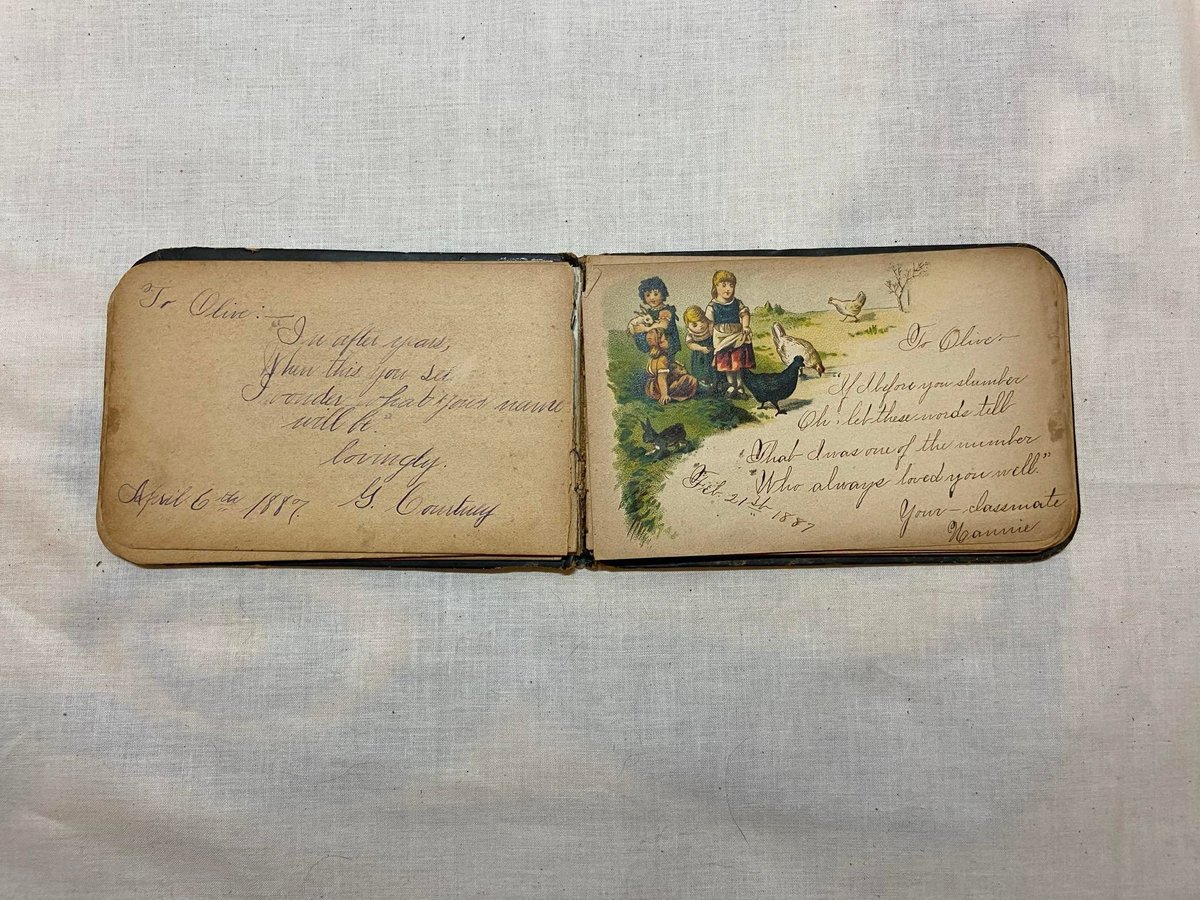 To Olive:—
"In after years,
When this you see
I wonder what your name
will be."
Lovingly.
April 6th 1887 G. Courtney
To Olive—
"If I before you slumber
Oh! let these words tell
"That I was one of the number
"Who always loved you well."
Feb. 21st 1887
Your—classmate
Nannie